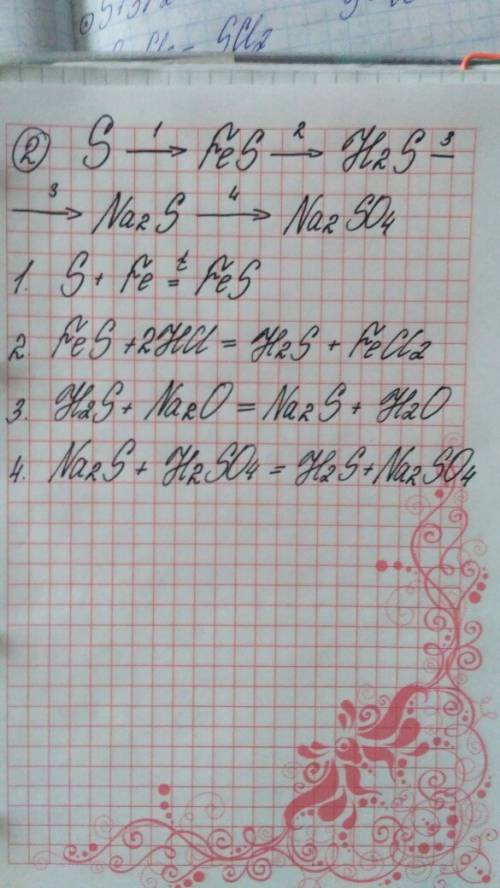 SCl₂
② S —1→ FeS —2→ H₂S —3
—3→ Na₂S —4→ Na₂SO₄
1. S + Fe =ᵗ FeS
2. FeS + 2HCl = H₂S + FeCl₂
3. H₂S + Na₂O = Na₂S + H₂O
4. Na₂S + H₂SO₄ = H₂S + Na₂SO₄